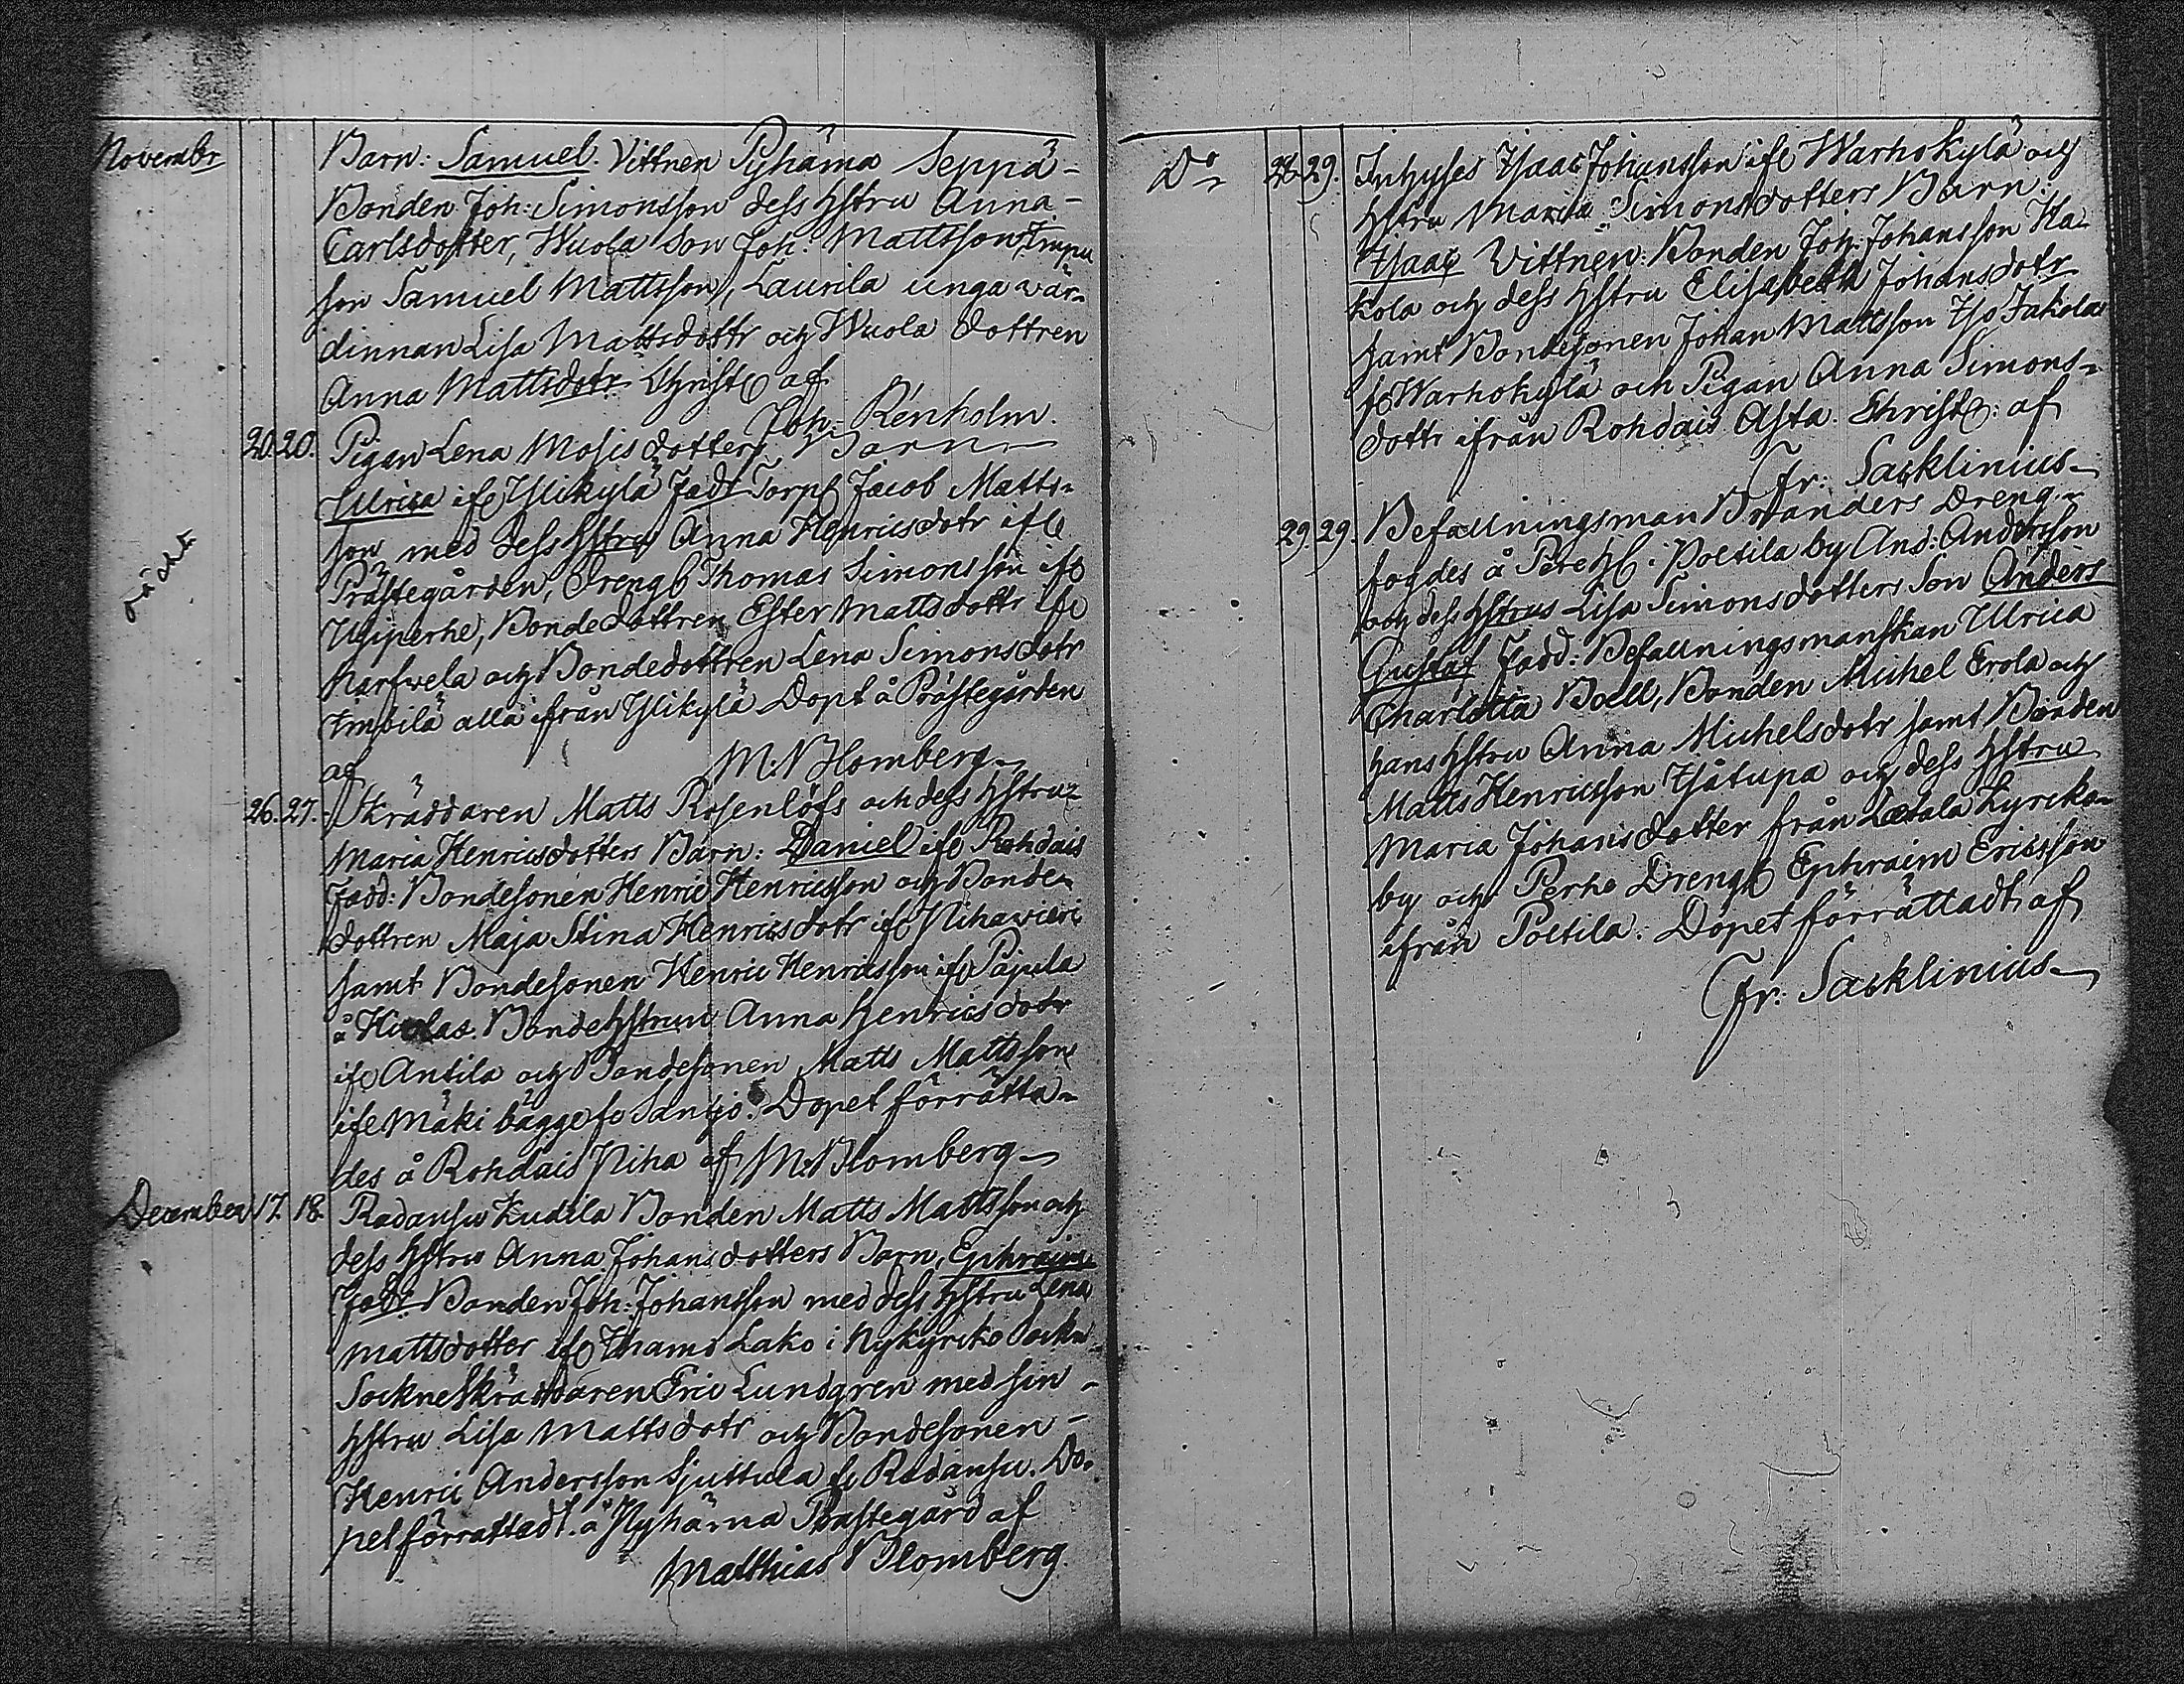 November
Barn: Samuel. Vittnen Pyhäma Seppä-
Bonden Joh: Simonsson dess hstru Anna-
Carlsdotter, Wuola Son Joh: Mattsson,
son Samuel Mattsson, Laurila unga vär-
dinnan Lisa Mattsdottr och Wuola dottren
Anna Mattsdotr Christ af
Joh: Renholm.
20. 20. Pigan Lena Mosisdotters Barn
Ulrica ifr Ylikylä Fadr Torp Jacob Matts-
son med dess hstru Anna Henricsdotr ifr
Prästegården, Drengr Thomas Simonsson ifr
Uusiperhe, Bondedottren Ester Mattsdottr ifr
Karfwela och Bondedottren Lena Simonsdotr
alla ifrån Ylikylä Dopt å Prästegården
af M. Blomberg
oächt
26. 27. Skräddaren Matts Rosenlöfs och dess hstru
Maria Henricsdotters Barn: Daniel ifr Rohdais
Fadd: Bondesonen Henric Henricsson och Bonde-
dottren Maja Stina Henricsdotr ifr
samt Bondesonen Henric Henricsson ifr Pajula
å Bondehstrun Anna Henricsdotr
ifr Antila och Bondesonen Matts Mattsson
ifr Mäki bägge fr Santjo. Dopet förrätta-
des å Rohdais Niha af M. Blomberg
December 17. 18. Radansu Kudila Bonden Matts Mattsson och
dess hstru Anna Johansdotters Barn, Ephraim
Fadr Bonden Joh: Johansson med dess hstru Lena
Mattsdotter ifr Lako i Nykyrko Sockn
Sockneskräddaren Eric Lundgren med sin
hstru Lisa Mattsdotr och Bondesonen
Henric Andersson Sjuttula fr Radansu. Do-
pet förrättadt å Pyhäma Prästegård af
Matthias Blomberg.
Do 28. 29. Inhyses Isaac Johansson ifr Warhokylä och
hstru Maria Simonsdotters Barn:
Isaac Vittnen: Bonden Joh: Johansson Ha-
kola och dess hstru Elisabeth Johansdotr
samt Bondesonen Johan Mattsson Iso Jakola
fr Warhokylä och Pigan Anna Simons-
dottr ifrån Rohdais Asta. Christ: af
Fr: Sacklinius
29. 29. Befallningsman Branders Dreng-
fogdes å Pere i Poetila by And: Andersson
och dess hstrus Lisa Simonsdotters Son Anders
Gustaf Fadd: Befallningsmanskan Ulrica
Charlotta Boell, Bonden Michel Erola och
hans hstru Anna Michelsdotr samt Bonden
Matts Henricsson Isotupa och dess hstru
Maria Johansdotter från Laitala Kyrcko-
by och Perho Drengr Ephraim Ericsson
ifrån Poetila. Dopet förrättadt af
Fr: Sacklinius